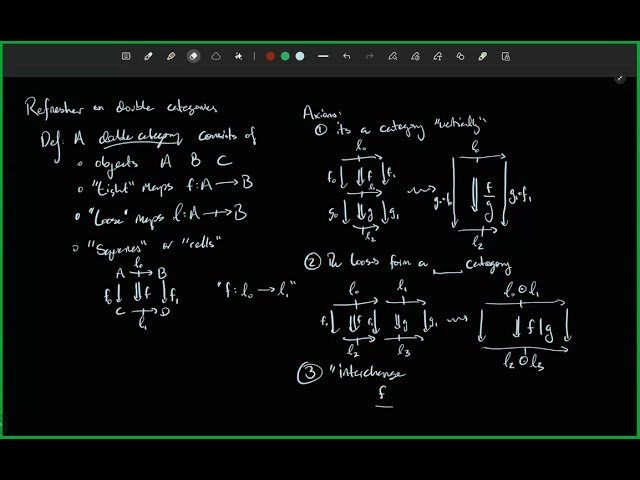 Refresher on double categories
Def: A double category consists of
o objects A B C
o "Tight" maps f: A → B
o "Loose" maps l: A ⇸ B
o "Squares" or "cells"
l₀
A ⇸ B
f₀ ↓ ⇓ f ↓ f₁
C ⇸ D
l₁
"f: l₀ → l₁"
Axioms:
① its a category "vertically"
l₀
f₀ ↓ ⇓ f ↓ f₁
l₁
g₀ ↓ ⇓ g ↓ g₁
l₂
⇝
l₀
f
g
g₁∘f₁
l₂
② The looses form a ___ category
l₀ l₁
f₀ ⇓ f f₁ ⇓ g g₁
l₂ l₃
⇝
l₀ ⊙ l₁
⇓ f|g
l₂ ⊙ l₃
③ "interchange
f